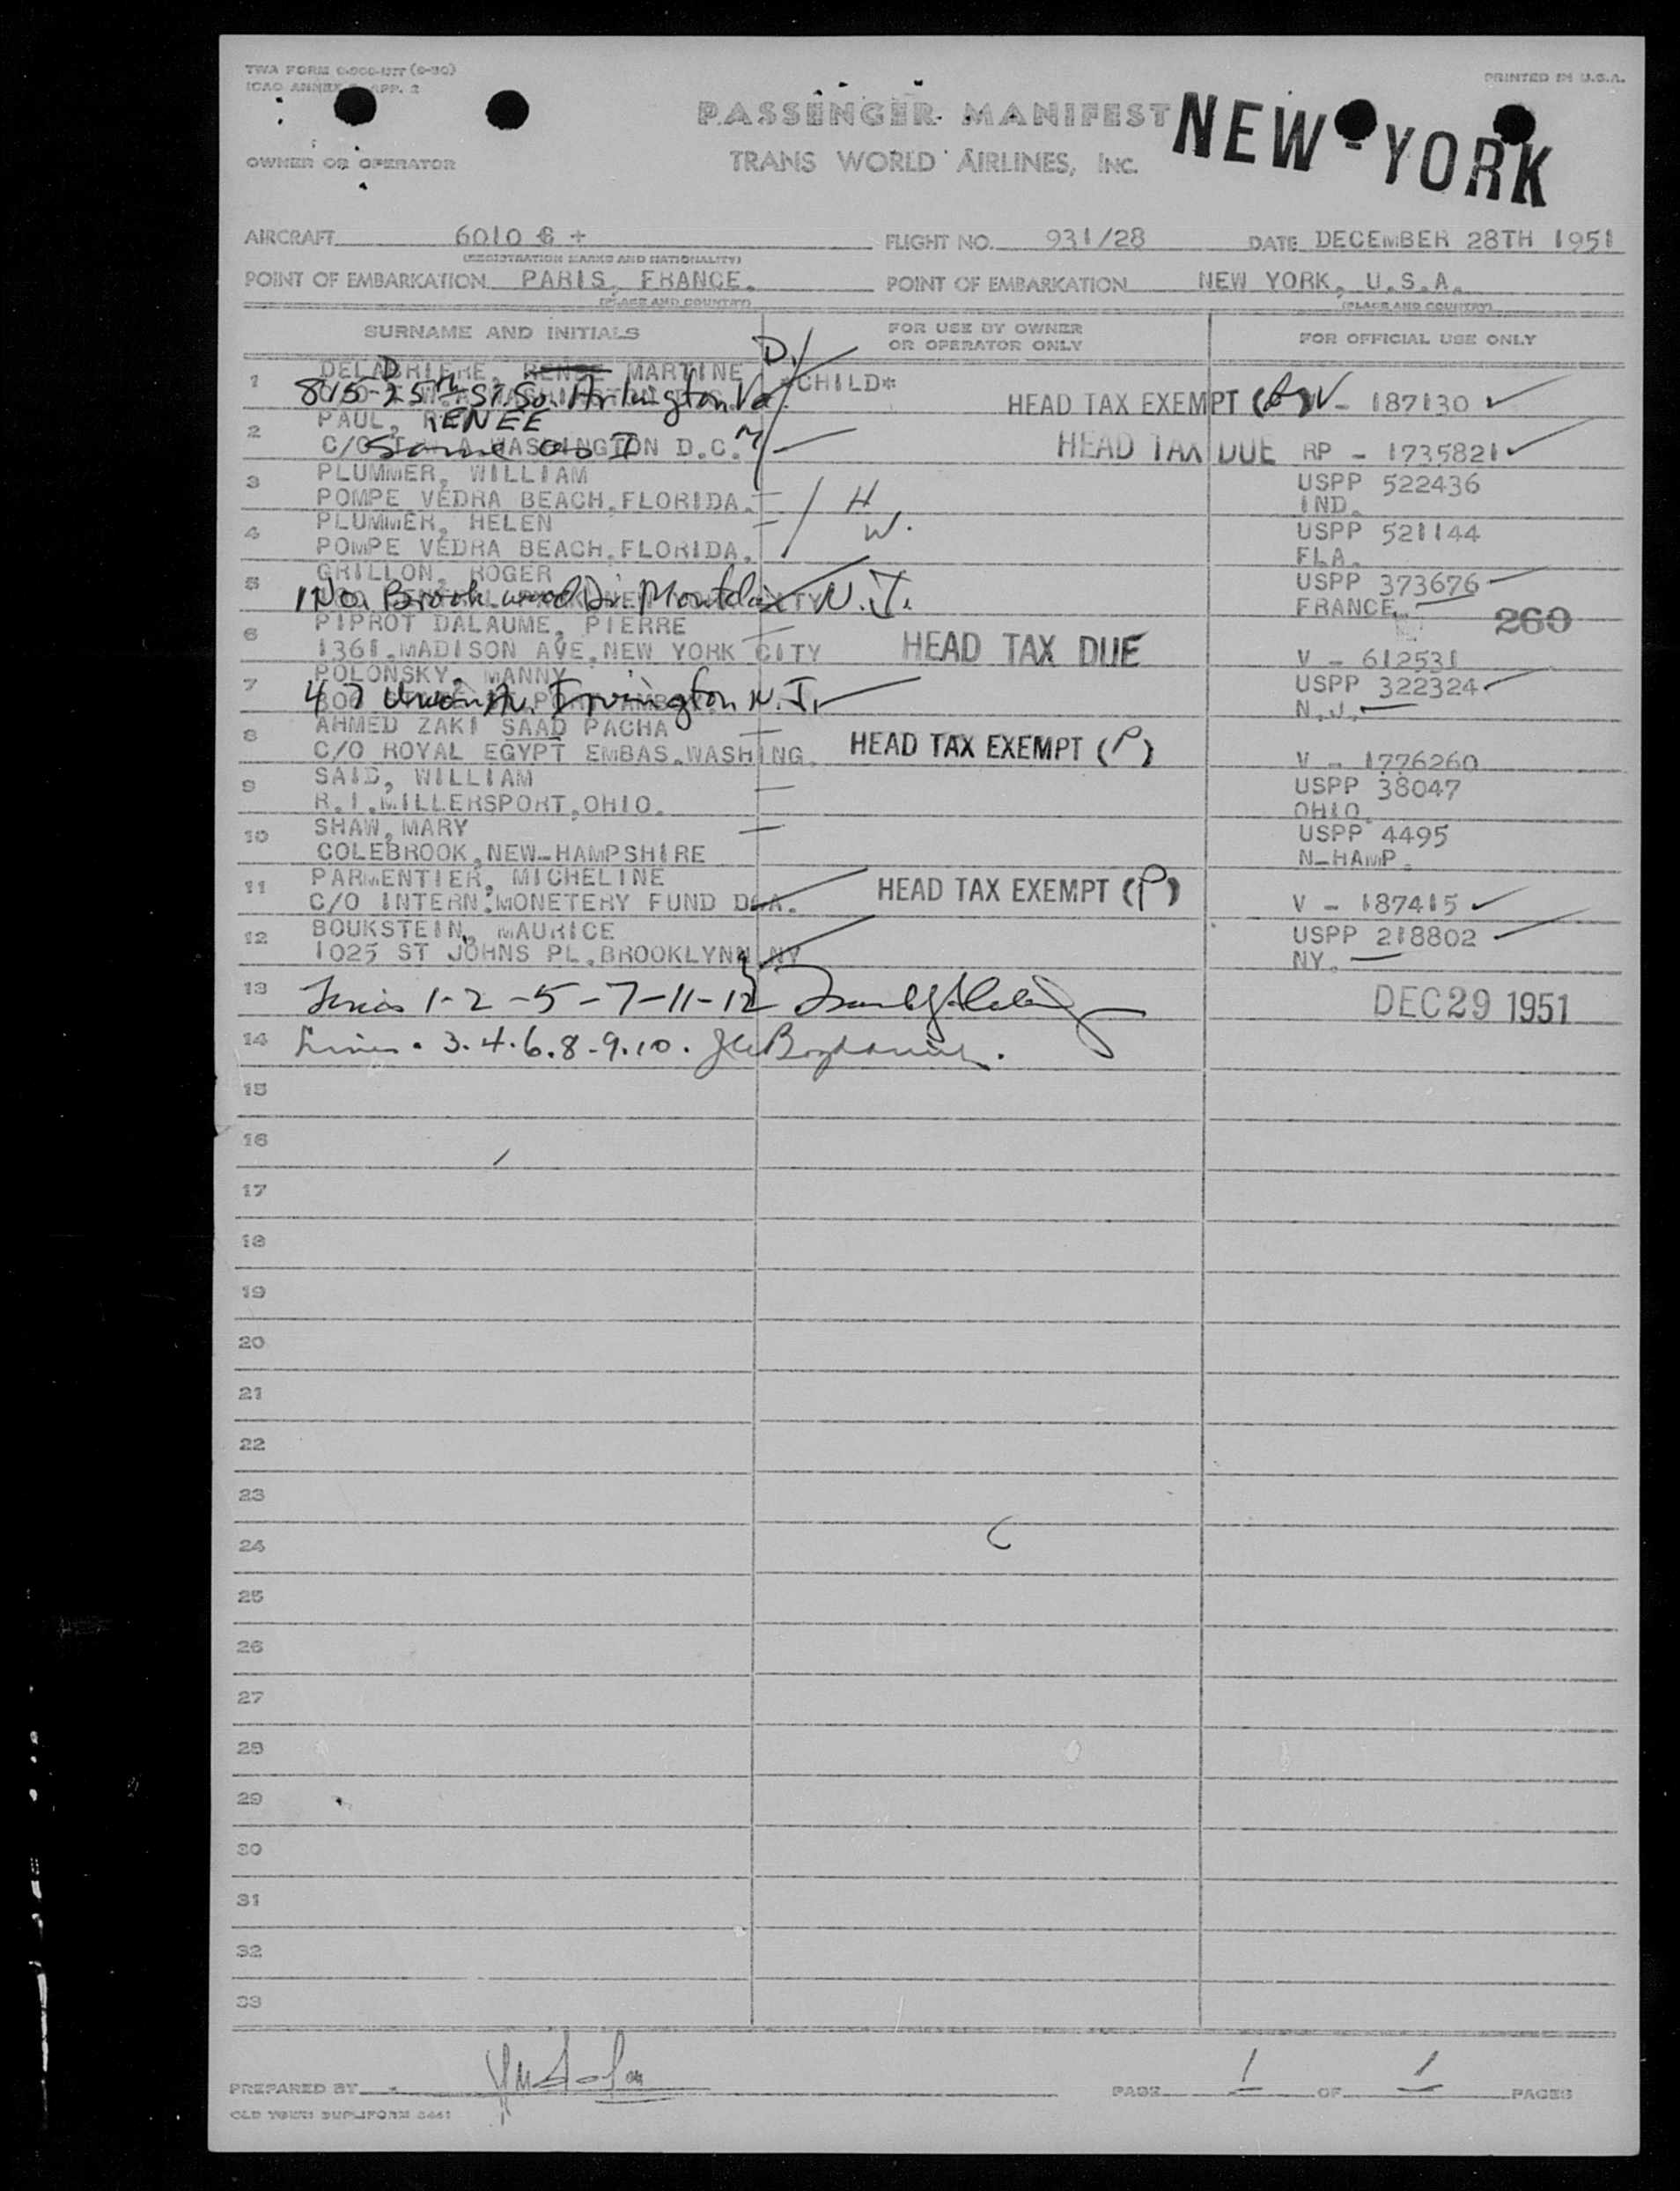 PRINTED IN U.S.A.
PASSENGER MANIFEST
NEW YORK
OWNER OR OPERATOR
TRANS WORLD AIRLINES, INC.
AIRCRAFT 6010 FLIGHT NO. 931/28 DATE DECEMBER 28TH 1951
(REGISTRATION MARKS AND NATIONALITY)
POINT OF EMBARKATION PARIS, FRANCE. POINT OF EMBARKATION NEW YORK, U.S.A.
(PLACE AND COUNTRY) (PLACE AND COUNTRY)
SURNAME AND INITIALS FOR USE BY OWNER OR OPERATOR ONLY FOR OFFICIAL USE ONLY
D.
1 MARTINE *CHILD*
815-25th St. So. Arlington Va. HEAD TAX EXEMPT V - 187130
2 PAUL, RENEE
C/O WASHINGTON D.C. Same as I M HEAD TAX DUE RP - 1735821
3 PLUMMER, WILLIAM USPP 522436
POMPE VEDRA BEACH, FLORIDA. H IND.
4 PLUMMER, HELEN W. USPP 521144
POMPE VEDRA BEACH, FLORIDA. FLA.
5 GRILLON, ROGER USPP 373676
Brookwood Dr. Montclair N.J. FRANCE.
260
6 PIPROT DALAUME, PIERRE
1361, MADISON AVE, NEW YORK CITY HEAD TAX DUE V - 612531
7 POLONSKY, MANNY USPP 322324
47 Union Av. Irvington N.J. N.J.
8 AHMED ZAKI SAAD PACHA
C/O ROYAL EGYPT EMBAS. WASHING. HEAD TAX EXEMPT (P) V - 1776260
9 SAID, WILLIAM USPP 38047
R.1. MILLERSPORT, OHIO. OHIO.
10 SHAW, MARY USPP 4495
COLEBROOK, NEW-HAMPSHIRE N-HAMP.
11 PARMENTIER, MICHELINE
C/O INTERN. MONETERY FUND HEAD TAX EXEMPT (P) V - 187415
12 BOUKSTEIN, MAURICE USPP 218802
1025 ST JOHNS PL. BROOKLYNN NY NY.
13 Lines 1-2-5-7-11-12 DEC 29 1951
14 Lines. 3.4.6.8.9.10.
15
16
17
18
19
20
21
22
23
24
25
26
27
28
29
30
31
32
33
PREPARED BY PAGE 1 OF 1 PAGES